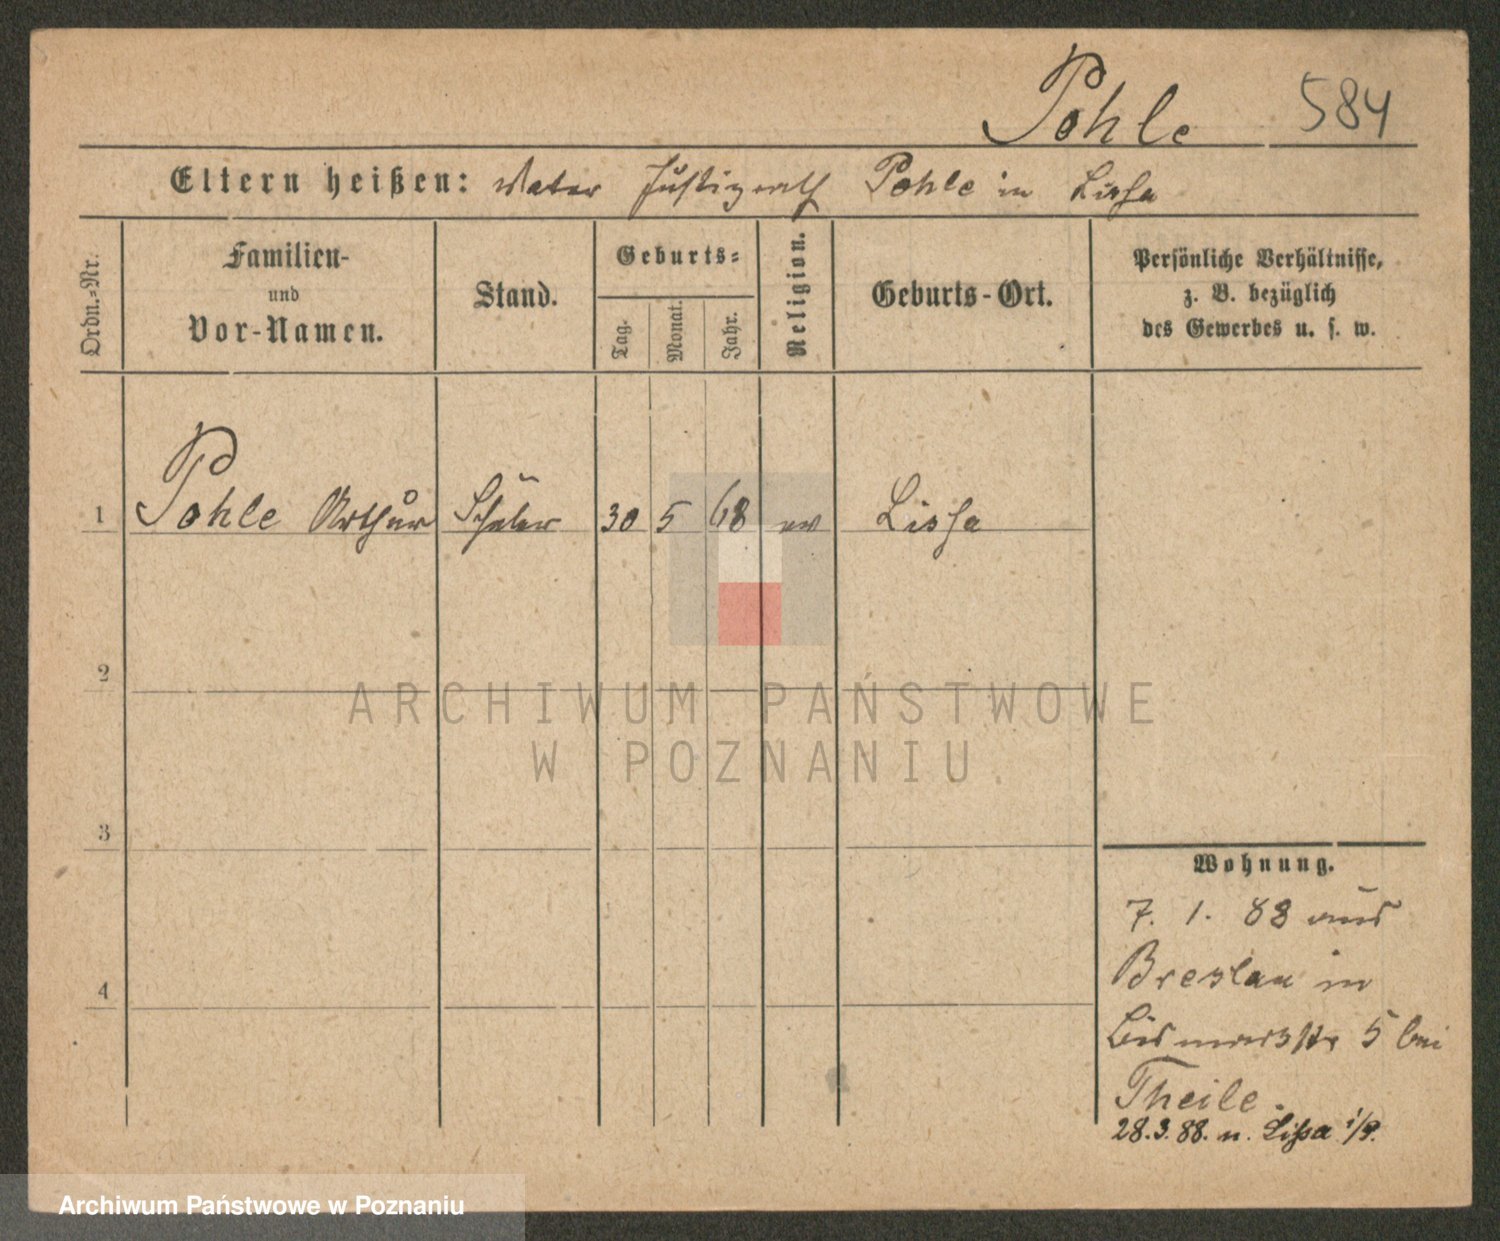 Pohle 584
Eltern heißen: Vater Justizrath Pohle in Lissa
Ordn.-Nr.
Familien-
und
Vor-Namen.
Stand.
Geburts-
Tag.
Monat.
Jahr.
Religion.
Geburts-Ort.
Persönliche Verhältnisse,
z. B. bezüglich
des Gewerbes u. s. w.
1 Pohle Arthur Schüler 30 5 68 ev Lissa
2
ARCHIWUM PAŃSTWOWE
W POZNANIU
3
Wohnung.
7. 1. 88 aus
Breslau in
4
Bismarckstr 5 bei
Theile.
28.3.88. n. Lißa i/P.
Archiwum Państwowe w Poznaniu